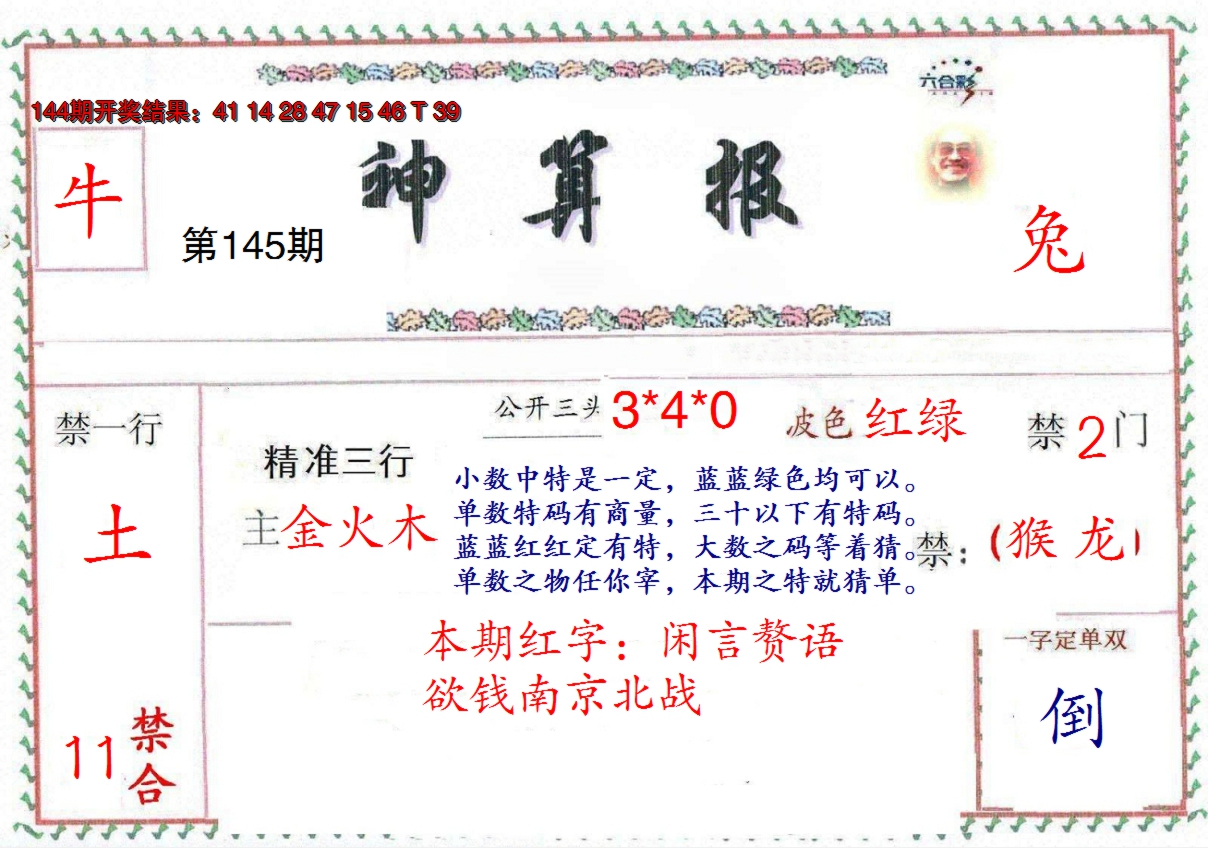 六合彩
144期开奖结果：41 14 28 47 15 46 T 39
神算报
牛
第145期
兔
公开三头 3*4*0
波色 红绿
禁一行
土
禁2门
精准三行
主金火木
小数中特是一定，蓝蓝绿色均可以。
单数特码有商量，三十以下有特码。
蓝蓝红红定有特，大数之码等着猜。
单数之物任你宰，本期之特就猜单。
禁：（猴 龙）
本期红字：闲言赘语
欲钱南京北战
一字定单双
倒
11禁合